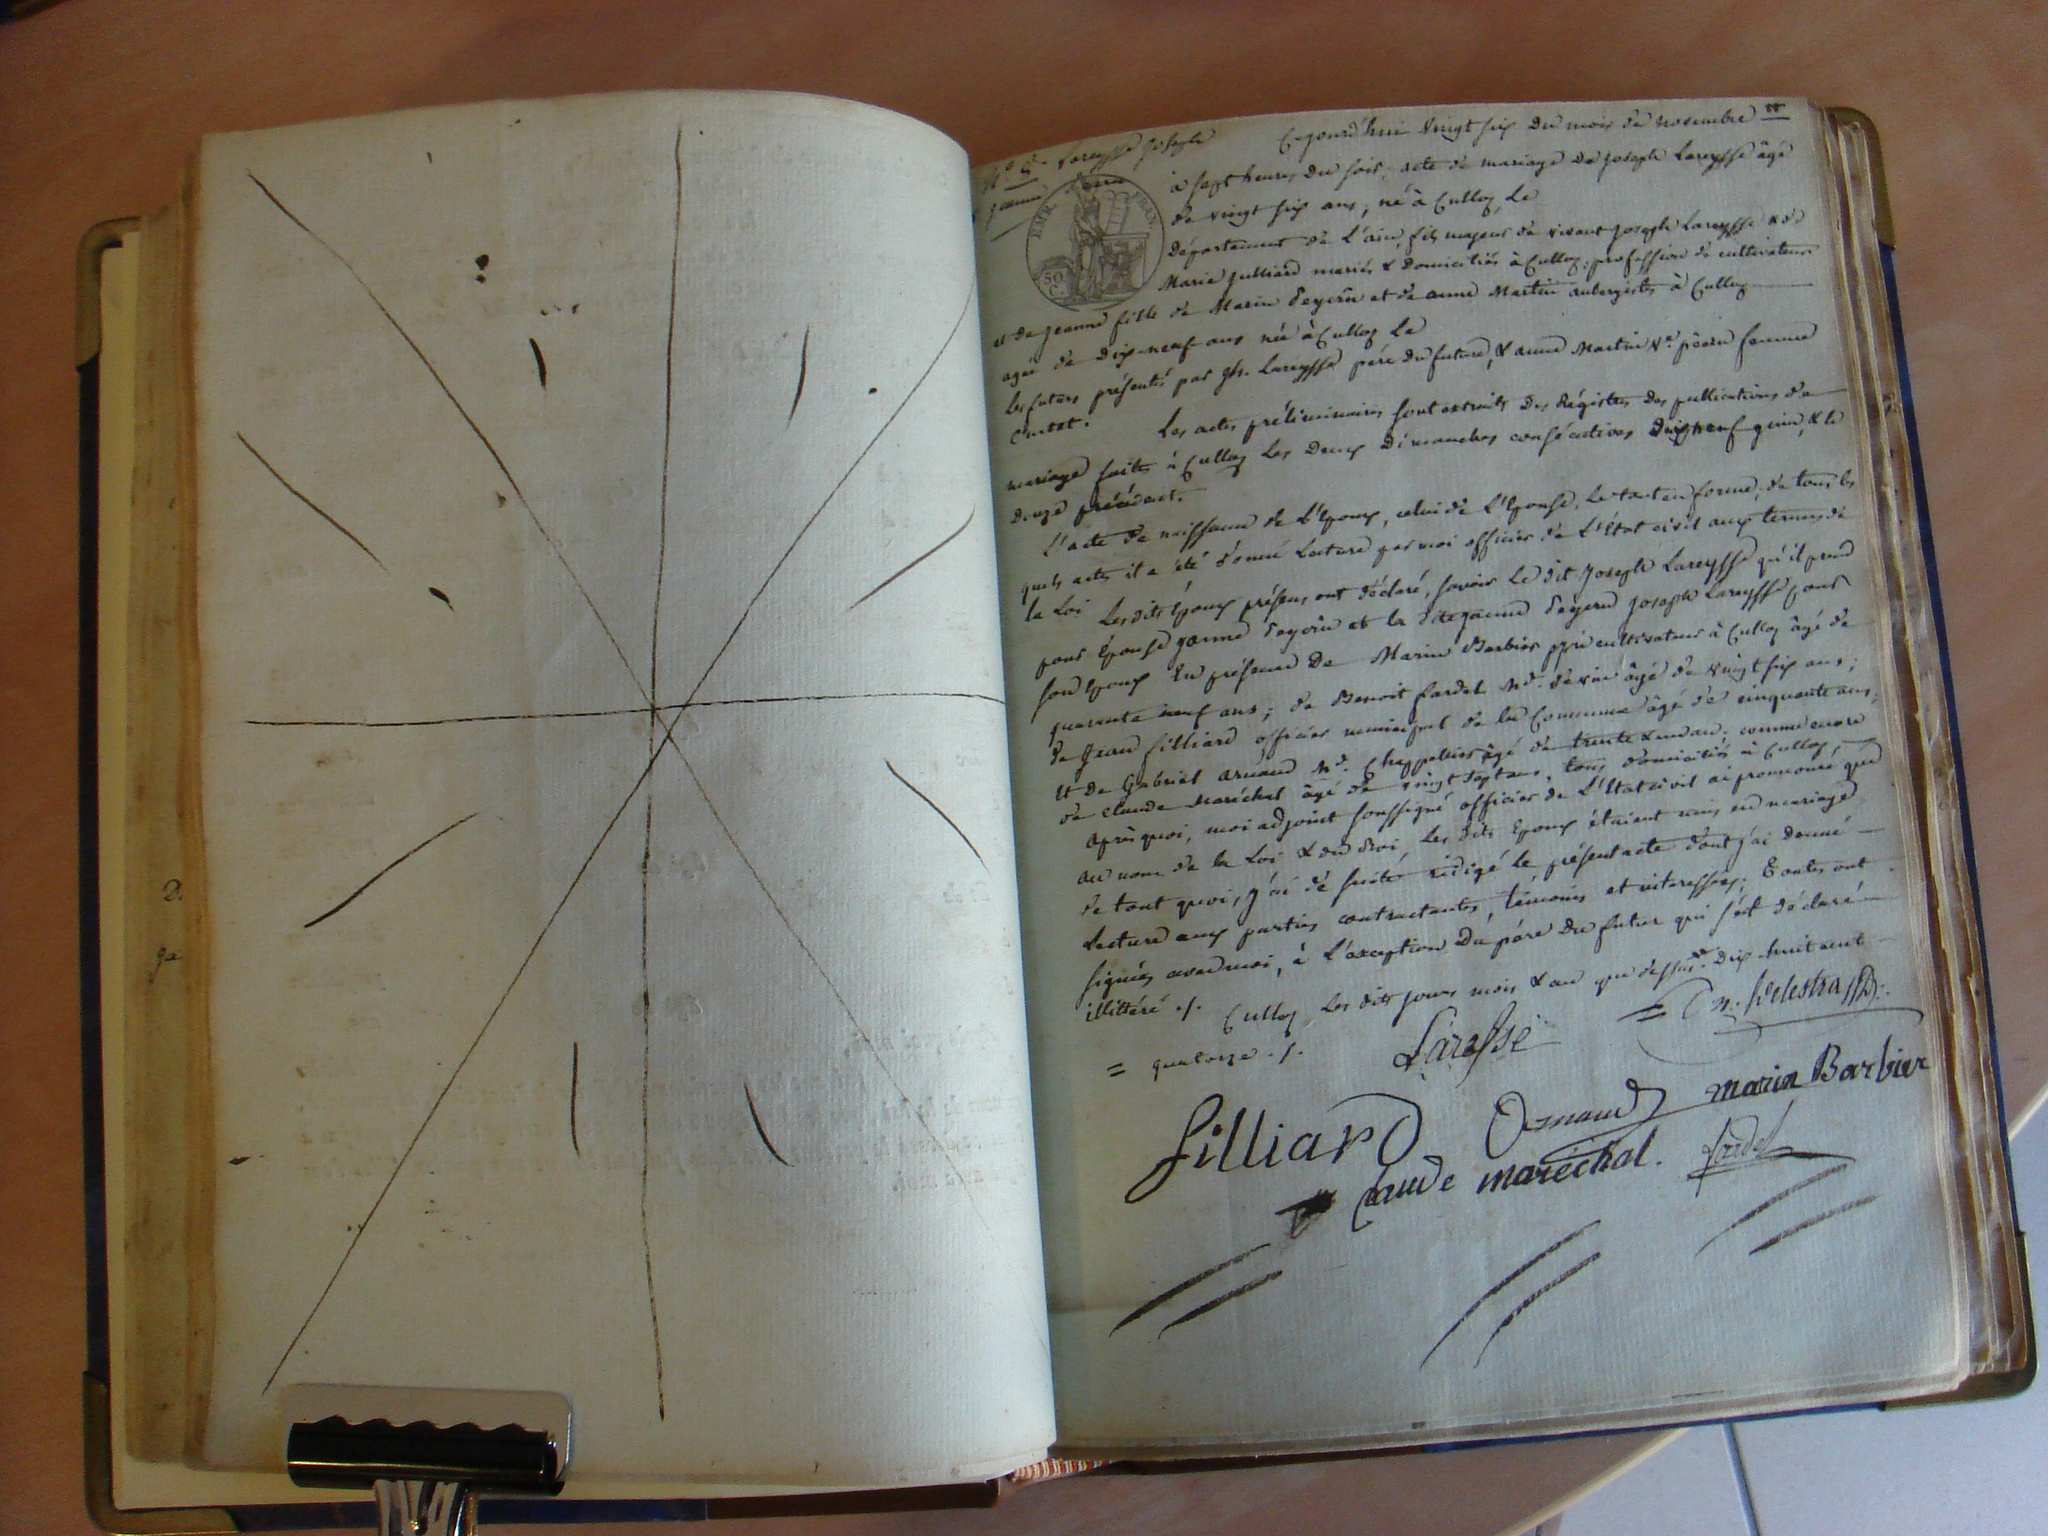 N° 5. Lareysse Joseph
& jeanne
EMP. FRAN.
50 C.
Cejourd'hui vingt six du mois de novembre
à sept heures du soir, acte de mariage de joseph Lareysse âgé
de vingt six ans, né à Culloz, Le
département de L'ain, fils majeur de vivant joseph Lareysse & de
Marie Julliard mariés & domiciliés à Culloz, profession de cultivateur
et de jeanne fille de Marin peyrin et de anne Martin aubergistes à Culloz
agée de dix-neuf ans née à Culloz Le
Les futurs présentés par jh. Lareysse père du future, & anne Martin Ve. femme
Curtet.
Les actes préliminaires sont extraits des Régistres des publications de
mariage faites à Culloz les deux dimanches consécutives & le
douze précédent.
L'acte de naissance de L'Epoux, celui de L'Epouse, Le tout en forme; de tous les
quels actes il a été donné Lecture par moi officier de L'état civil aux termes de
la Loi Les dits Epoux présens ont déclaré, savoir Le dit Joseph Lareysse qu'il prend
pour Epouse jeanne peyrin et la dite jeanne peyrin joseph Lareysse pour
son Epoux En présence De Marin Barbier ppre cultivateur à Culloz âgé de
quarante neuf ans; de Benoit fardel Md. de vin âgé de vingt six ans;
de Jean filliard officier municipal de la Commune âgé de cinquante ans;
et de Gabriel arnaud Md. Chappelier âgé de trente & un an; comme encore
de claude maréchal âgé de vingt sept ans, tous domiciliés à Culloz,
après quoi, moi adjoint soussigné officier de L'Etat civil ai prononcé que
au nom de la Loi & du Roi, Les dits Epoux étaient unis en mariage
de tout quoi, j'ai de suite rédigé le présent acte dont j'ai donné
Lecture aux parties contractantes, témoins et intéressés; Toutes ont
signées avec moi, à L'exception du père du futur qui s'est déclaré
illittéré ./.
Culloz Les dits jours mois & an que dessus. dix huit cent
= quatorze ./.
Lareysse
filliard
Arnaud
marin Barbier
Claude maréchal.
fardel